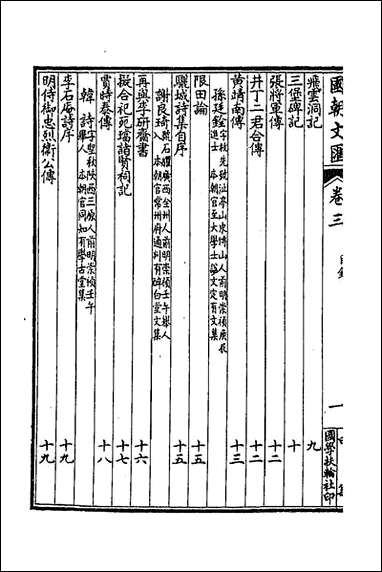 國朝文匯 卷三 目錄 一 國學扶輪社印
飛雲洞記 九
三堡碑記 十
張將軍傳 十二
井丁二君合傳 十二
黃靖南傳 十三
孫廷銓 字枚先號沚亭山東博山人前明崇禎庚辰進士 本朝官至大學士諡文定有文集
限田論 十五
嚴城詩集自序 十五
謝良琦 號石臞廣西全州人前明崇禎壬午舉人 本朝官常州府通判有醉白堂文集
再與李研齋書 十六
擬合祀苑璫諸賢祠記 十七
賈時泰傳 十八
韓詩 字聖秋陝西三原人前明崇禎壬午舉人 本朝官同知有學古堂集
李石庵詩序 十九
明侍御忠烈衛公傳 十九